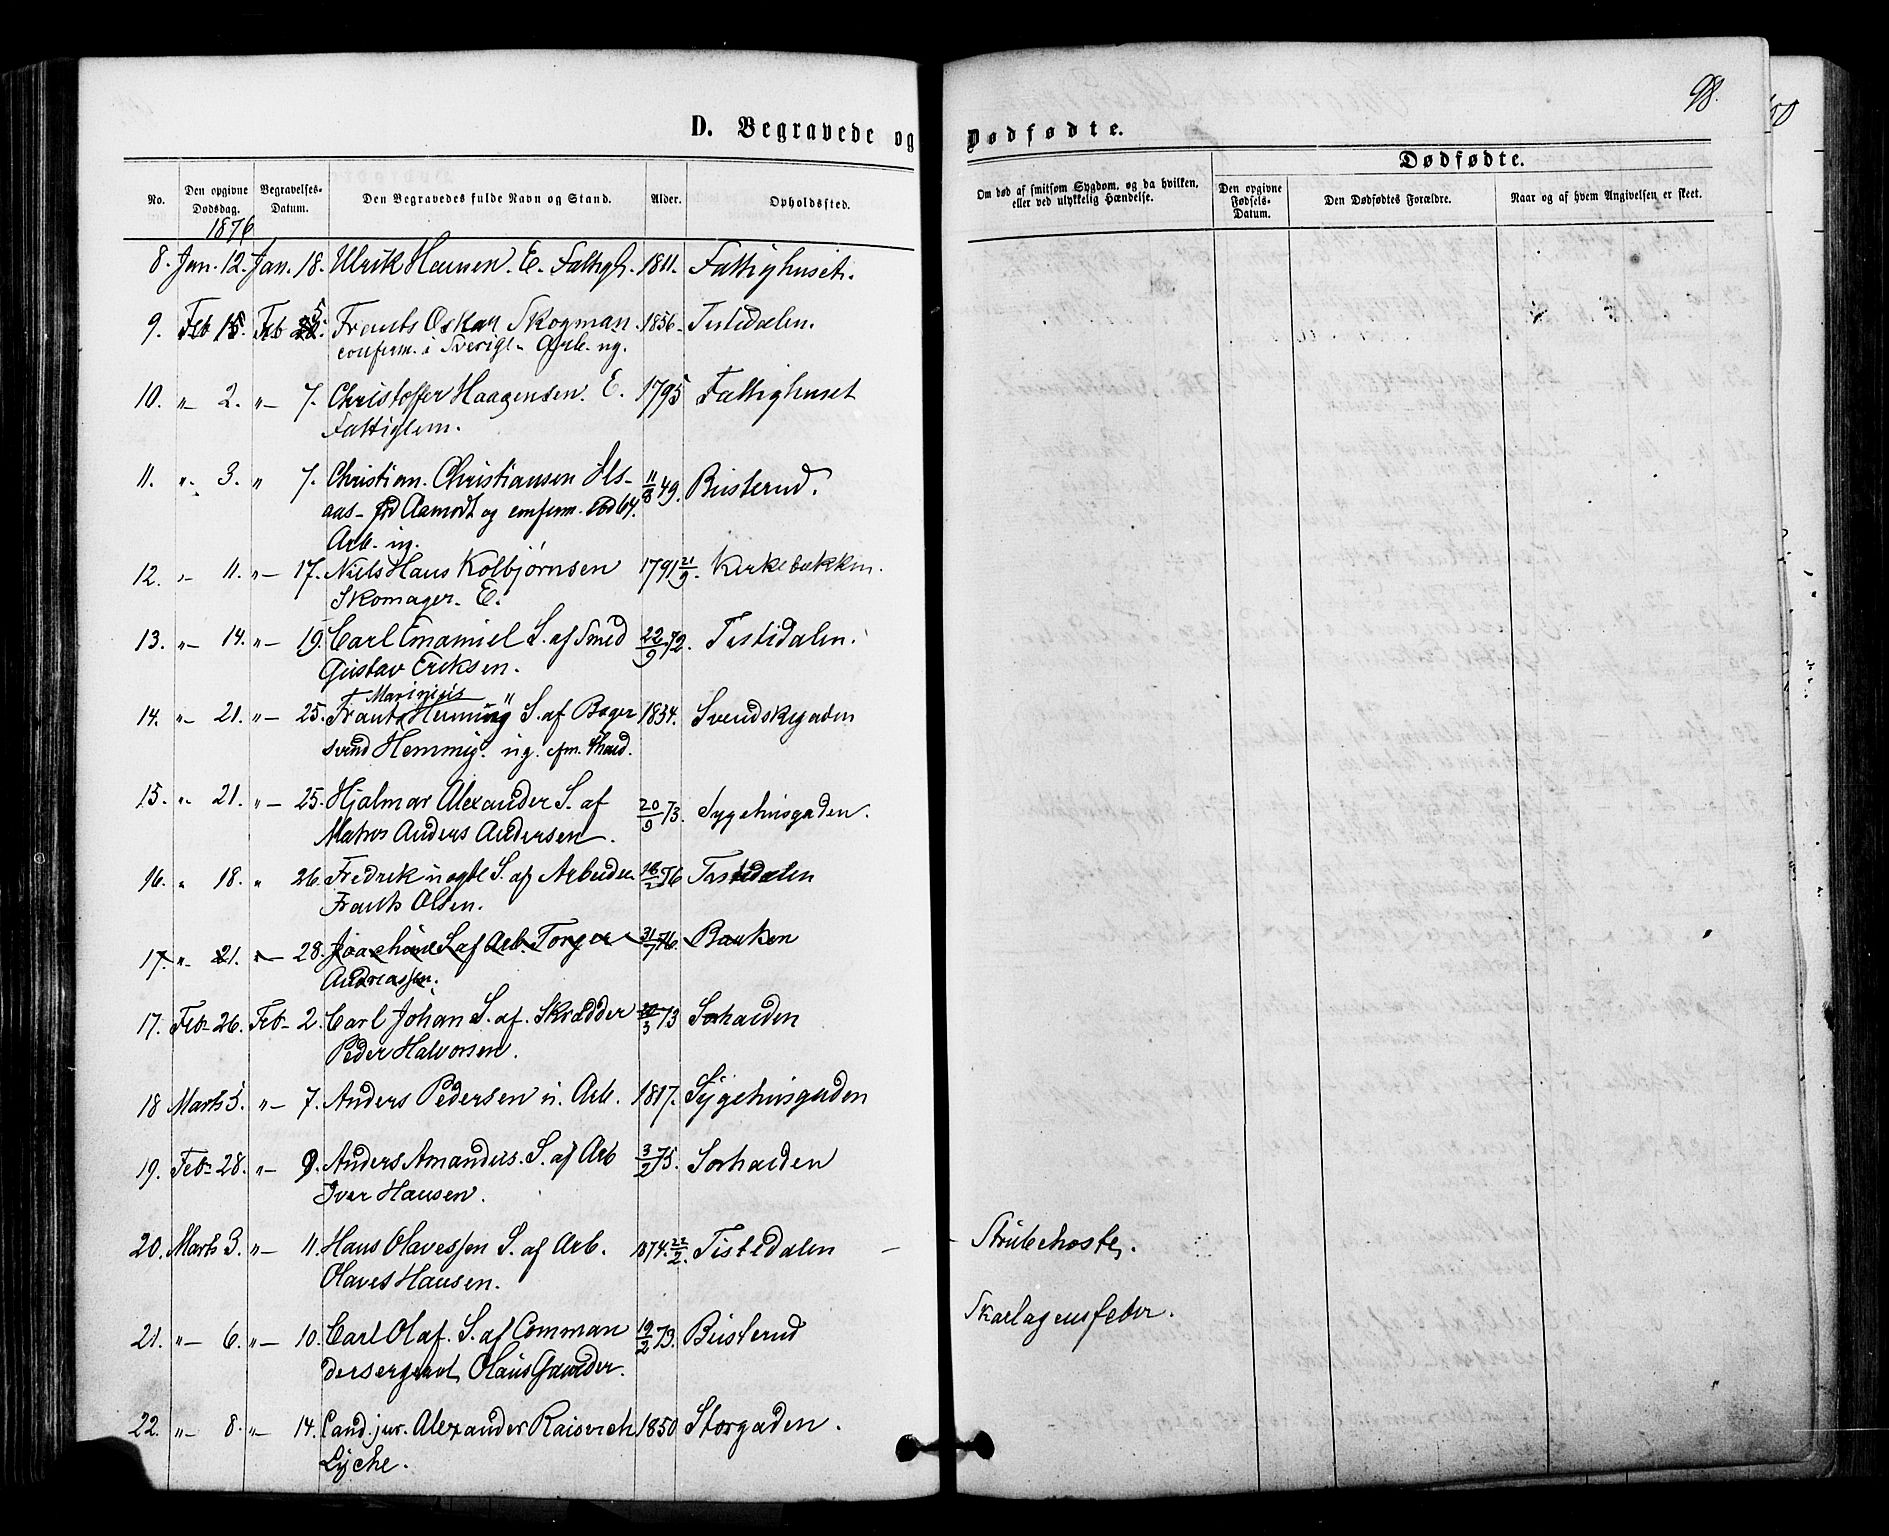 98.
100
D. Begravede og Dødfødte.
Dødfødte.
No.
Den opgivne Dødsdag.
Begravelses-Datum.
Den Begravedes fulde Navn og Stand.
Alder.
Opholdsted.
Om død af smitsom Sygdom, og da hvilken, eller ved ulykkelig Hændelse.
Den opgivne Fødsels-Datum.
Den Dødfødtes Forældre.
Naar og af hvem Angivelsen er skeet.
1876
8. Jan. 12. Jan. 18. Ulrik Hansen. E. Fattigl. 1811. Fattighuset.
9. Feb 15. Feb 5. Frants Oskar Skogman. 1856. Tistedalen.
conferm. i Sverige. Arb. ug.
10. "– 2. "– 7. Christoffer Haagensen. E. 1795 Fattighuset
Fattiglem.
11. " 3. " 7. Christian Christiansen Uls- 11/8 49. Busterud.
aas – fød Aamodt og conferm. 64.
Arb. ug.
12. "– 11. "– 17. Niels Hans Kolbjørnsen 1791 21/9. Kirkebakken.
Skomager. E.
13. "– 14. "– 19. Carl Emanuel S. af Smed 22/9 72. Tistidalen.
Gustav Eriksen.
Marinius
14. "– 21. "– 25. Frants Henning S. af Bager 1834. Svendskegaden
svend Hemmig. ug. cfm. Thard.
15. " 21. "– 25. Hjalmar Alexander S. af 20/9 73. Sygehusgaden.
Matros Anders Andersen.
16. " 18. " 26. Fredrik uægte S. af Arbeider 76 Tistedalen
Frants Olsen.
17. " 21. "– 28. Joachim S. af Arb. Torger 31/7 76. Banken
Andreassen.
17. Feb– 26. Feb– 2. Carl Johan S. af Skrædder 73 Sørhalden
Peder Halvorsen.
18 Marts 3. "– 7. Anders Pedersen u. Arb. 1817. Sygehusgaden
19. Feb– 28. "– 9. Anders Amandus. S. af Arb 3/2 75. Sorhalden
Iver Hansen.
20. Marts 3. "– 11. Hans Olavessen S. af Arb. 1874. 22/2. Tistedalen – – Strubehoste.
Olaves Hansen.
21. "– 6. "– 10. Carl Olaf. S. af Comman 19/2 73. Busterud Skarlagensfeber.
dersergeant Olaus Gaarder.
22. "– 8. "– 14. Cand. jur. Alexander Raisvich 1850 Storgaden.
Lyche.